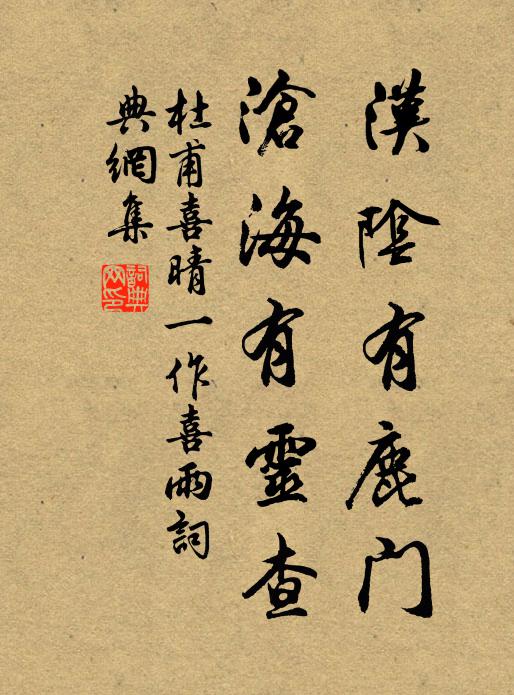 漢陰有鹿门
滄海有靈查
杜甫喜晴一作喜雨詞
典網集
詞典網印